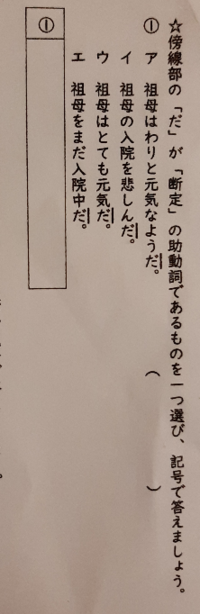 ☆傍線部の「だ」が「断定」の助動詞であるものを一つ選び、記号で答えましょう。
① ア 祖母はわりと元気なようだ。 （ ）
イ 祖母の入院を悲しんだ。
ウ 祖母はとても元気だ。
エ 祖母をまだ入院中だ。
①